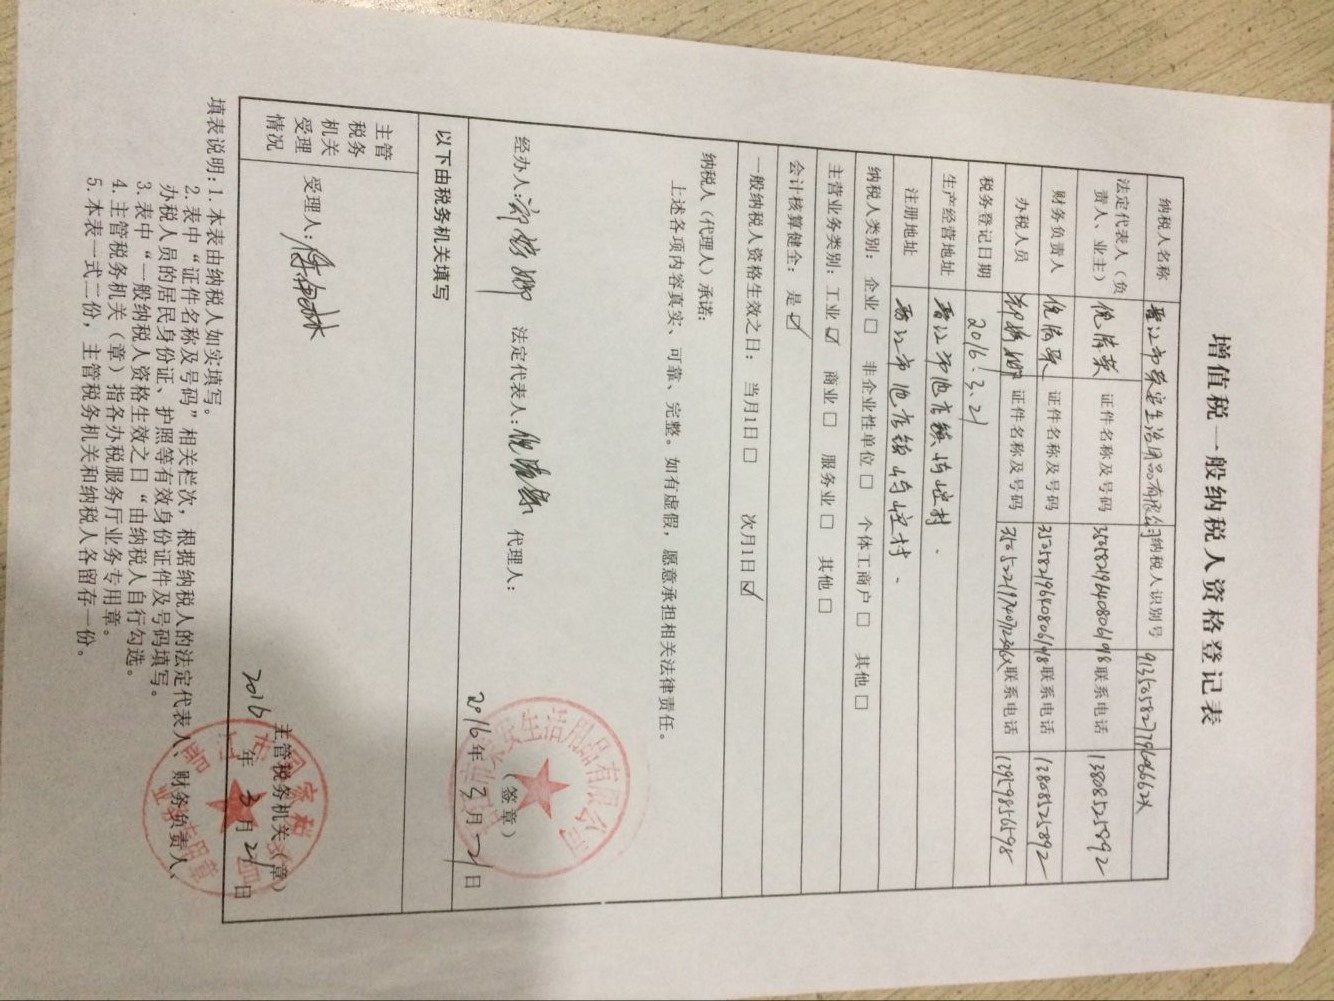 增值税一般纳税人资格登记表
纳税人名称 晋江市荣安生活用品有限公司 纳税人识别号
法定代表人（负责人、业主） 证件名称及号码 350582196408061198 联系电话 13808525892
财务负责人 证件名称及号码 350582196408061198 联系电话 13808525892
办税人员 证件名称及号码 联系电话
税务登记日期 2016.3.21
生产经营地址 晋江市池店镇 村
注册地址 晋江市池店镇 村
纳税人类别：企业□ 非企业性单位□ 个体工商户□ 其他□
主营业务类别：工业☑ 商业□ 服务业□ 其他□
会计核算健全：是☑
一般纳税人资格生效之日：当月1日□ 次月1日☑
纳税人（代理人）承诺：
上述各项内容真实、可靠、完整。如有虚假，愿意承担相关法律责任。
经办人： 法定代表人： 代理人：
（签章）
2016年3月21日
以下由税务机关填写
主管税务机关受理情况
受理人：
主管税务机关（章）
2016年3月21日
填表说明：1. 本表由纳税人如实填写。
2. 表中“证件名称及号码”相关栏次，根据纳税人的法定代表人、财务负责人、
办税人员的居民身份证、护照等有效身份证件及号码填写。
3. 表中“一般纳税人资格生效之日“由纳税人自行勾选。
4. 主管税务机关（章）指各办税服务厅业务专用章。
5. 本表一式二份，主管税务机关和纳税人各留存一份。